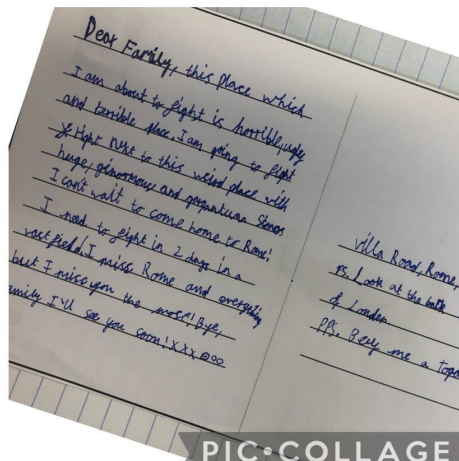 Dear Family, this place which
I am about to fight is horrible, ugly
and terrible place. I am going to fight
right next to this weird place with
huge, ginormous and gargantuan stones
I can't wait to come home to Rome!
I need to fight in 2 days in a
vast field. I miss Rome and everything
but I miss you the most! Bye,
family I'll see you soon! XXX OOO
Villa Road, Rome,
Ps. Look at the back
of London
PPs. Buy me a
PIC•COLLAGE